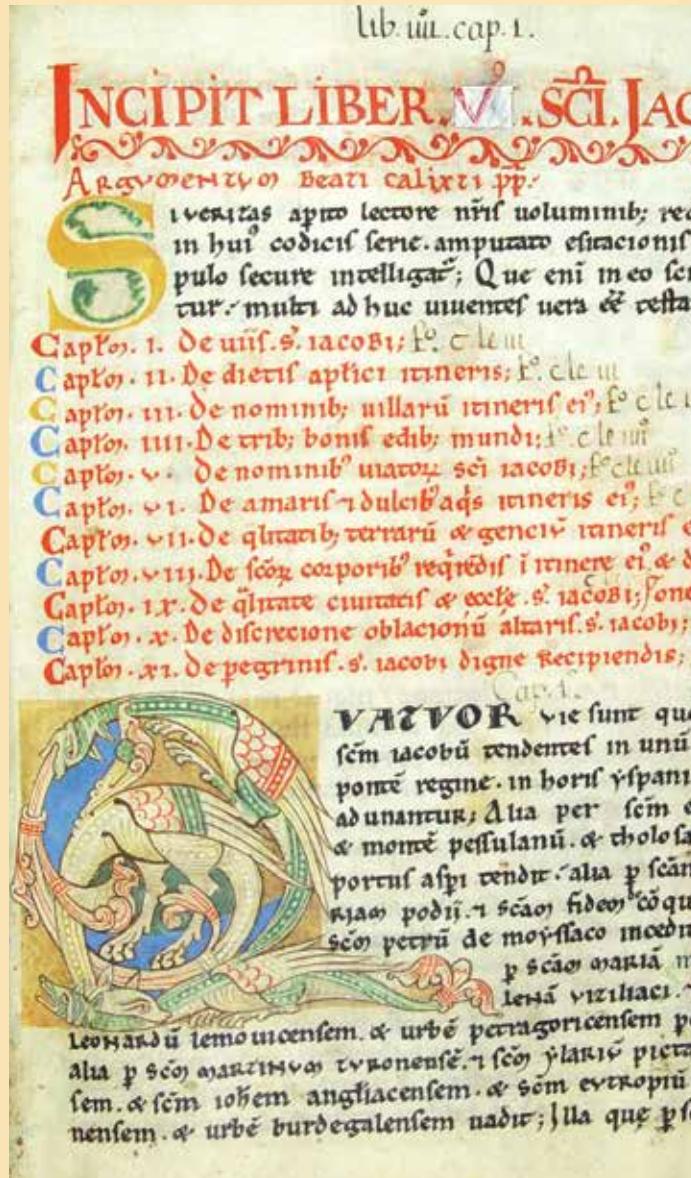 lib. iiii. cap. 1.
INCIPIT LIBER. V. SCI. JAC
Argumentum Beati Calixti .pp.
Si veritas apto lectore nris uoluminib; req
in hui⁹ codicis serie. amputato esitacionis
pulo secure intelligat²; Que eni in eo sc
tur. multi ad huc uiuentes uera eē testa
Capl'm. I. De uiis .s. iacobi; fº. c le iii
Capl'm. II. De dietis apl'ici itineris; fº. c le iii
Capl'm. III. De nominib; uillarū itineris ei⁹; fº c le
Capl'm. IIII. De trib; bonis edib; mundi; fº. c le iiiº
Capl'm. V. De nominib⁹ uiatoꝝ sci iacobi; fº c le iiiº
Capl'm. VI. De amaris ⁊ dulcib⁹ aq̄s itineris ei⁹; fº c
Capl'm. VII. De q̄litatib; terrarū & genciū itineris e
Capl'm. VIII. De scōꝝ corporib⁹ req̄rēdis ī itinere ei⁹ & d
Capl'm. IX. De q̄litate ciuitatis & eccl'e .s. iacobi;
Capl'm. X. De discrecione oblacionū altaris .s. iacobi;
Capl'm. XI. De peregrinis .s. iacobi digne Recipiendis;
Cap. 1.
QVATVOR vie sunt que
scm iacobū tendentes in unū
pontē regine. in horis yspani
ad unantur; Alia per scm e
& montē pessulanū. & tholosa
portus aspi tendit. alia p scām
Riam podii. ⁊ scām fidem cōqu
scm petrū de moyssaco incedit
p scām mariā m
lenā viziliaci. ⁊
Leonardū lemouicensem. & urbē petragoricensem p
alia p scm martinum turonensē. ⁊ scm ylariū picta
sem. & scm iohem angliacensem. & scm eutropiū
nensem. & urbē burdegalensem uadit; Illa que p s